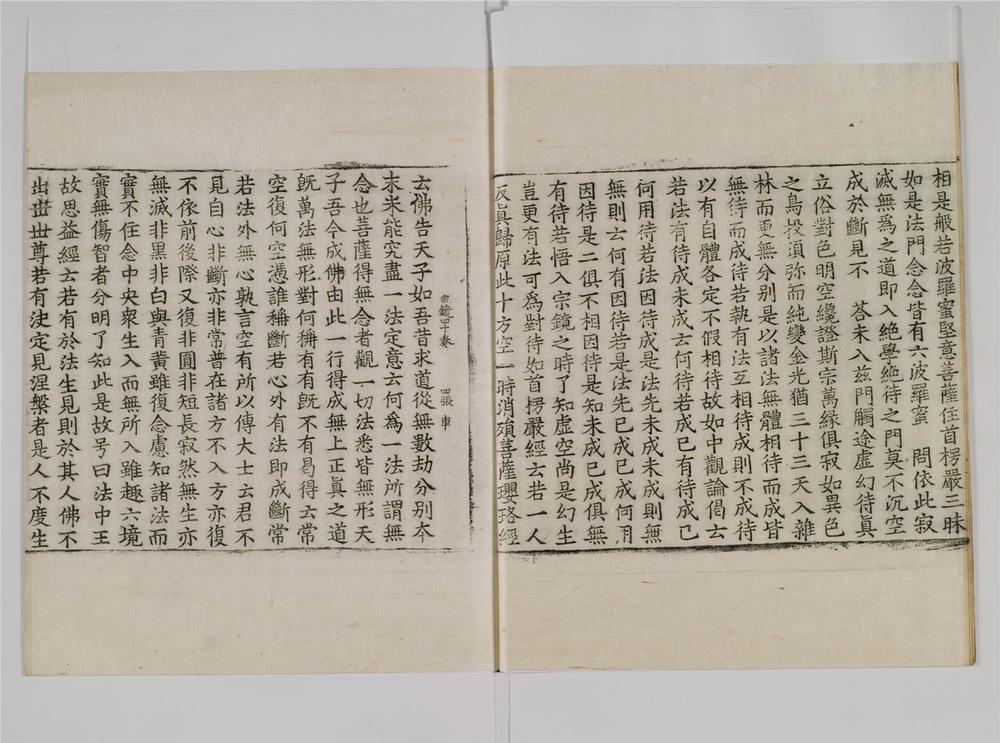 相是般若波羅蜜堅意菩薩住首楞嚴三昧
如是法門念念皆有六波羅蜜 問依此寂
滅無爲之道即入絶學絶待之門莫不沉空
成於斷見不 荅未入兹門觸途虛幻待眞
立俗對色明空纔證斯宗萬緣俱寂如異色
之鳥投須弥而純變金光猶三十三天入雜
林而更無分别是以諸法無體相待而成皆
無待而成待若執有法互相待成則不成待
以有自體各定不假相待故如中觀論偈云
若法有待成未成云何待若成已有待成已
何用待若法因待成是法先未成未成則無
無則云何有因待若是法先已成已成何用
因待是二俱不相因待是知未成已成俱無
有待若悟入宗鏡之時了知虛空尚是幻生
豈更有法可爲對待如首楞嚴經云若一人
反眞歸原此十方空一時消殞菩薩瓔珞經
宗鏡四十卷 四張 車
云佛告天子如吾昔求道從無數劫分别夲
末未能究盡一法定意云何爲一法所謂無
念也菩薩得無念者觀一切法悉皆無形天
子吾今成佛由此一行得成無上正眞之道
旣萬法無形對何稱有有旣不有曷得云常
空復何空憑誰稱斷若心外有法即成斷常
若法外無心孰言空有所以傅大士云君不
見自心非斷亦非常普在諸方不入方亦復
不依前後際又復非圓非短長寂然無生亦
無滅非黑非白與青黄雖復念慮知諸法而
實不住念中央衆生入而無所入雖趣六境
實無傷智者分明了知此是故号曰法中王
故思益經云若有於法生見則於其人佛不
出世世尊若有決定見涅槃者是人不度生